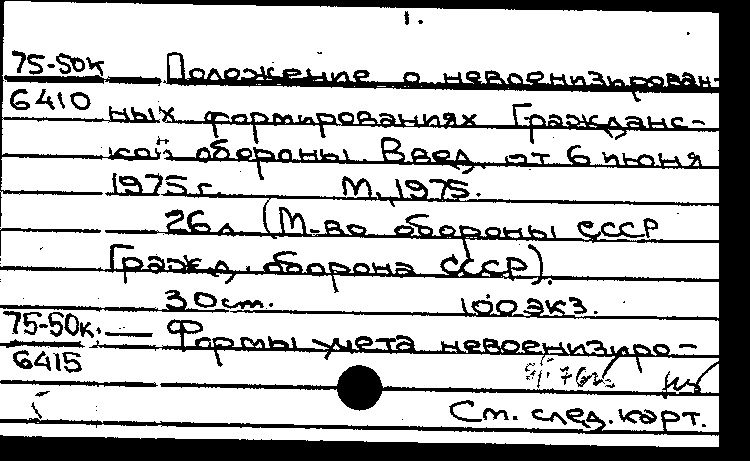 1.
75-50к Положение о невоенизирован-
6410 ных формированиях Гражданс-
кой обороны. Введ. от 6 июня
1975 г. М., 1975.
26 л. (М-во обороны СССР
Гражд. оборона СССР).
30 ст. 100 экз.
75-50к. Формы учета невоенизиро-
6415
См. след. карт.